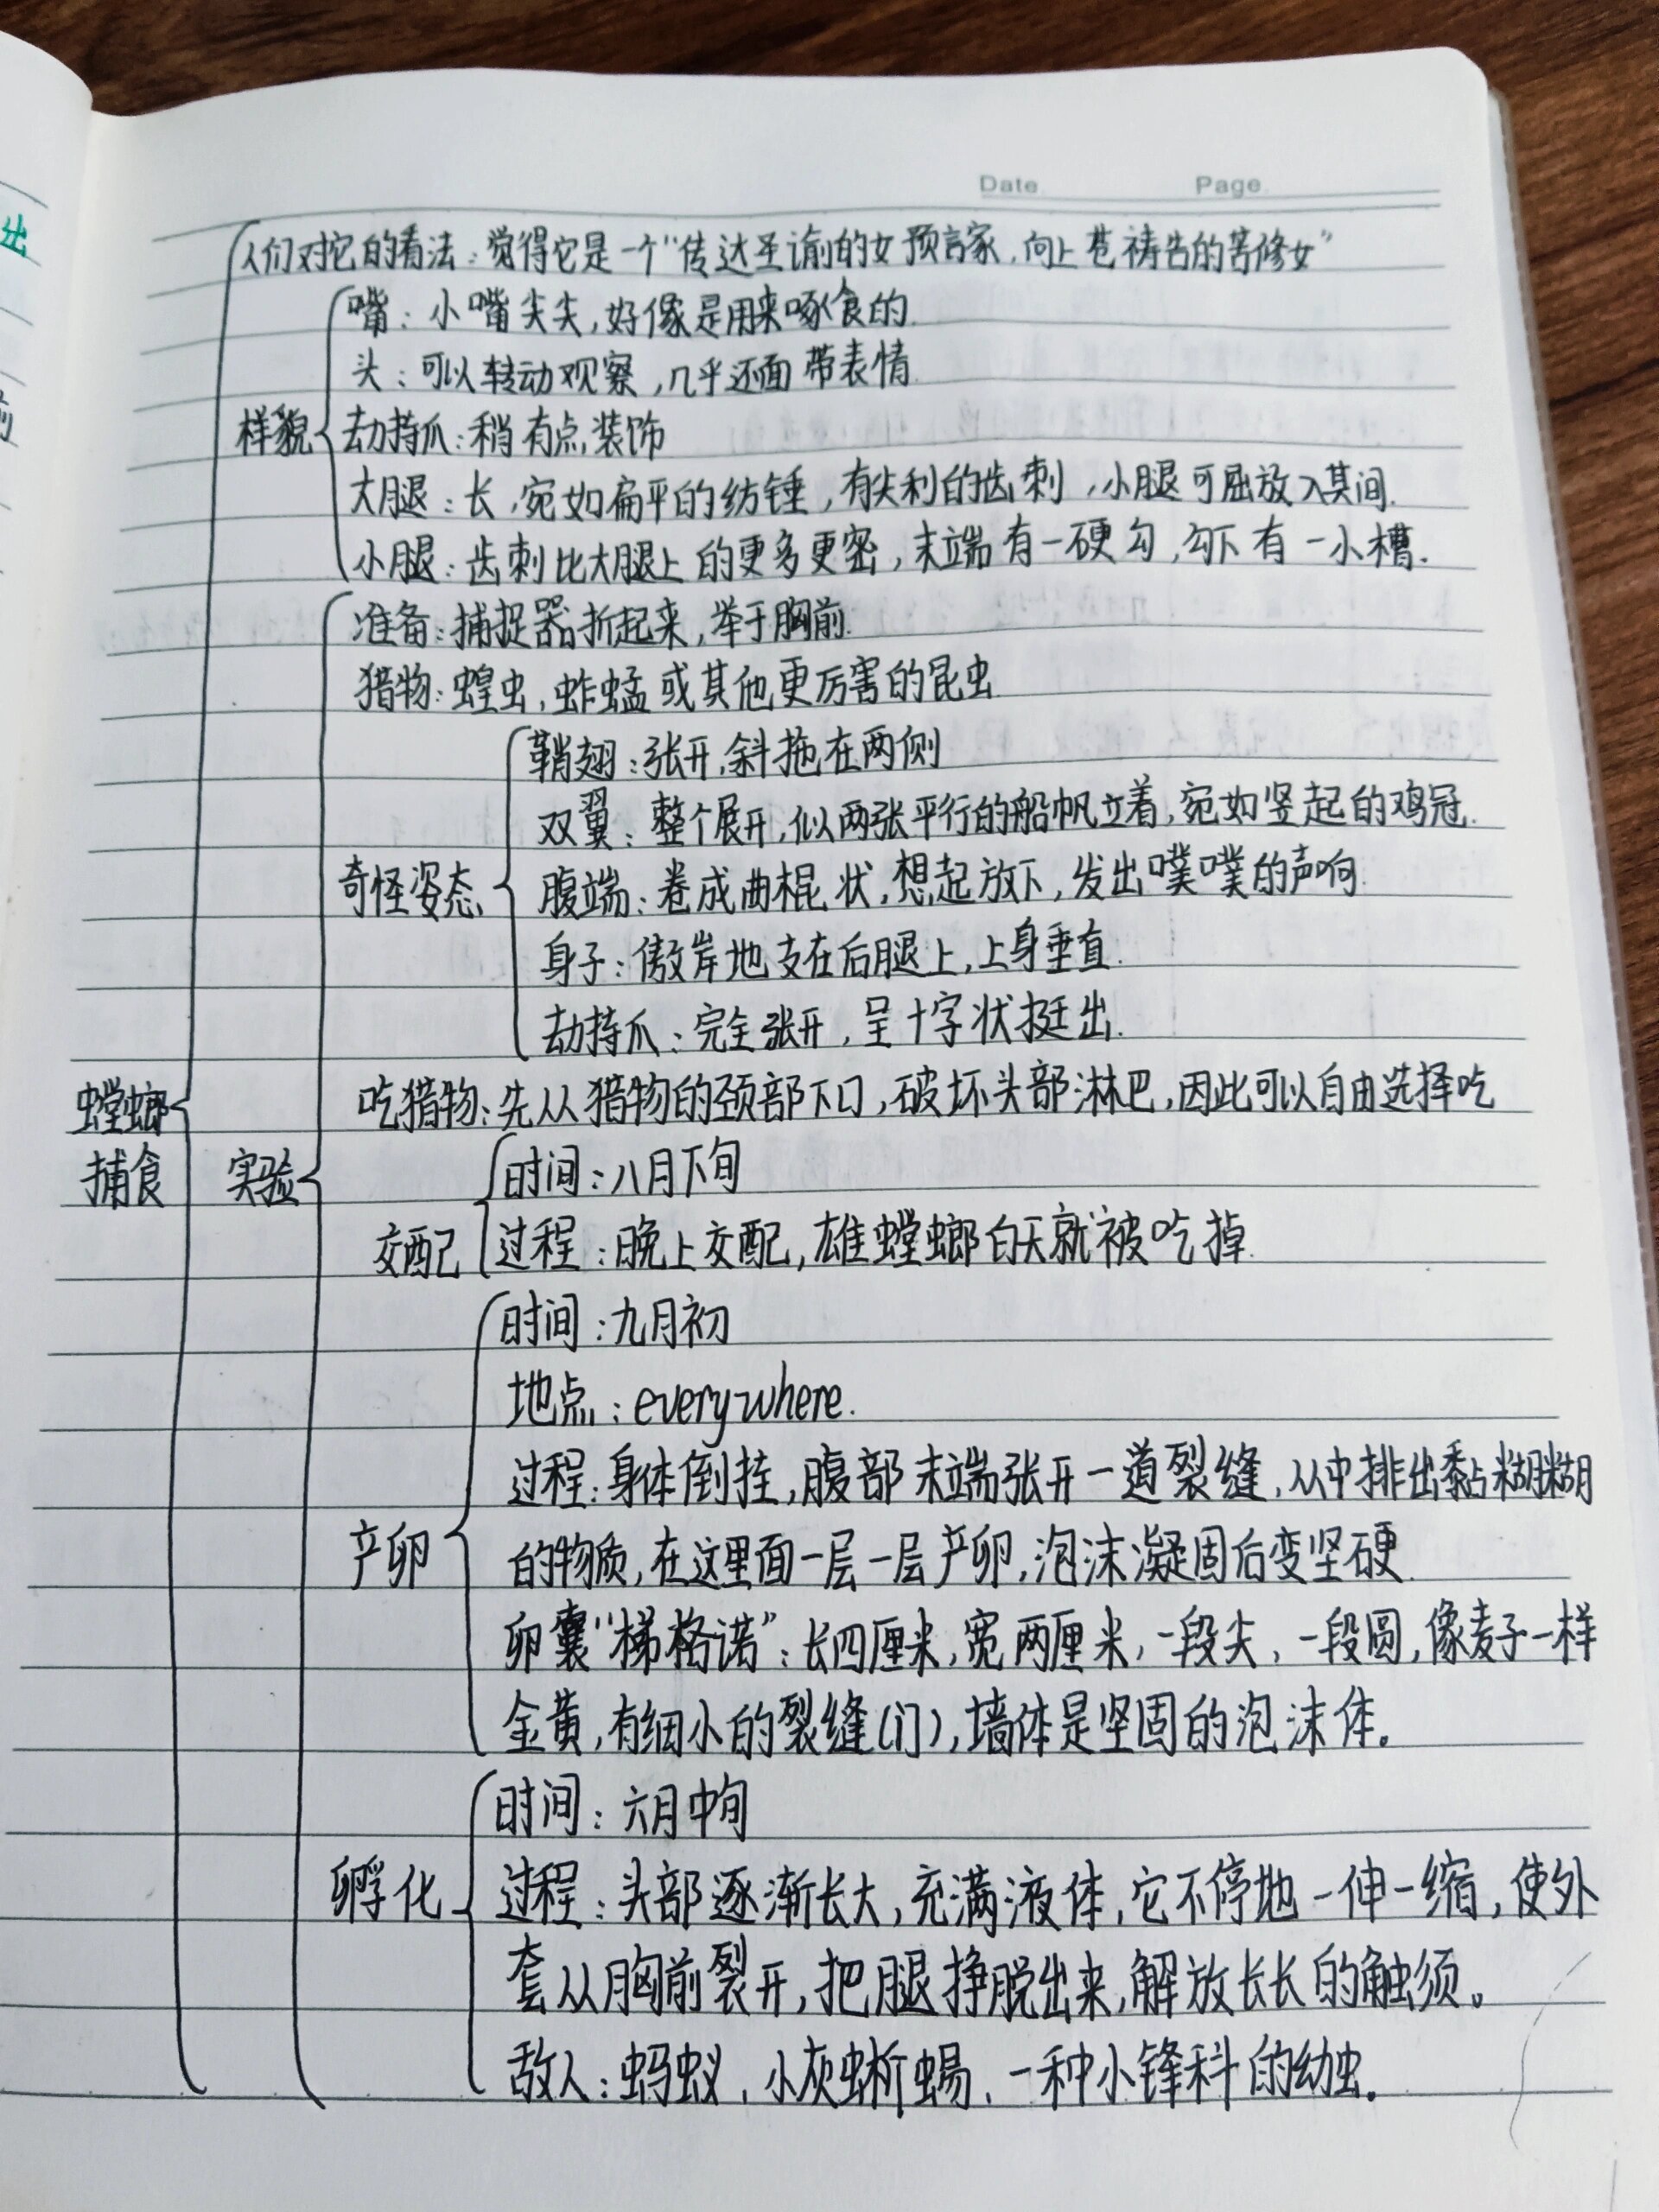 出
前
Date Page
人们对它的看法：觉得它是一个“传达圣谕的女预言家，向上苍祷告的苦修女”
嘴：小嘴尖尖，好像是用来啄食的.
头：可以转动观察，几乎还面带表情.
样貌 劫持爪：稍有点装饰
大腿：长，宛如扁平的纺锤，有尖利的齿刺，小腿可屈放入其间.
小腿：齿刺比大腿上的更多更密，末端有一硬勾，勾下有一小槽.
准备：捕捉器折起来，举于胸前.
猎物：蝗虫，蚱蜢或其他更厉害的昆虫
鞘翅：张开，斜拖在两侧
双翼：整个展开，似两张平行的船帆立着，宛如竖起的鸡冠.
奇怪姿态 腹端：卷成曲棍状，想起放下，发出噗噗的声响.
身子：傲岸地支在后腿上，上身垂直.
劫持爪：完全张开，呈十字状挺出.
吃猎物：先从猎物的颈部下口，破坏头部淋巴，因此可以自由选择吃
螳螂捕食 实验
时间：八月下旬
交配 过程：晚上交配，雄螳螂白天就被吃掉.
时间：九月初
地点：everywhere.
过程：身体倒挂，腹部末端张开一道裂缝，从中排出黏糊糊
产卵 的物质，在这里面一层一层产卵，泡沫凝固后变坚硬.
卵囊“梯格诺”：长四厘米，宽两厘米，一段尖，一段圆，像麦子一样
金黄，有细小的裂缝(门)，墙体是坚固的泡沫体。
时间：六月中旬
孵化 过程：头部逐渐长大，充满液体，它不停地一伸一缩，使外
套从胸前裂开，把腿挣脱出来，解放长长的触须。
敌人：蚂蚁、小灰蜥蜴、一种小锋科的幼虫。